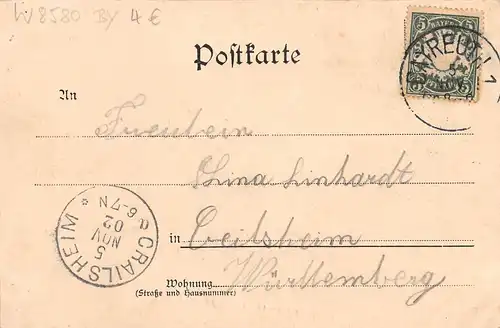 W 8580 BY 4 €
Postkarte
5 BAYERN 5
BAYREUTH 1
An
Fräulein
Lina Linhardt
in Crailsheim
Württemberg
Wohnung
(Straße und Hausnummer)
CRAILSHEIM
5
NOV
02
6-7N